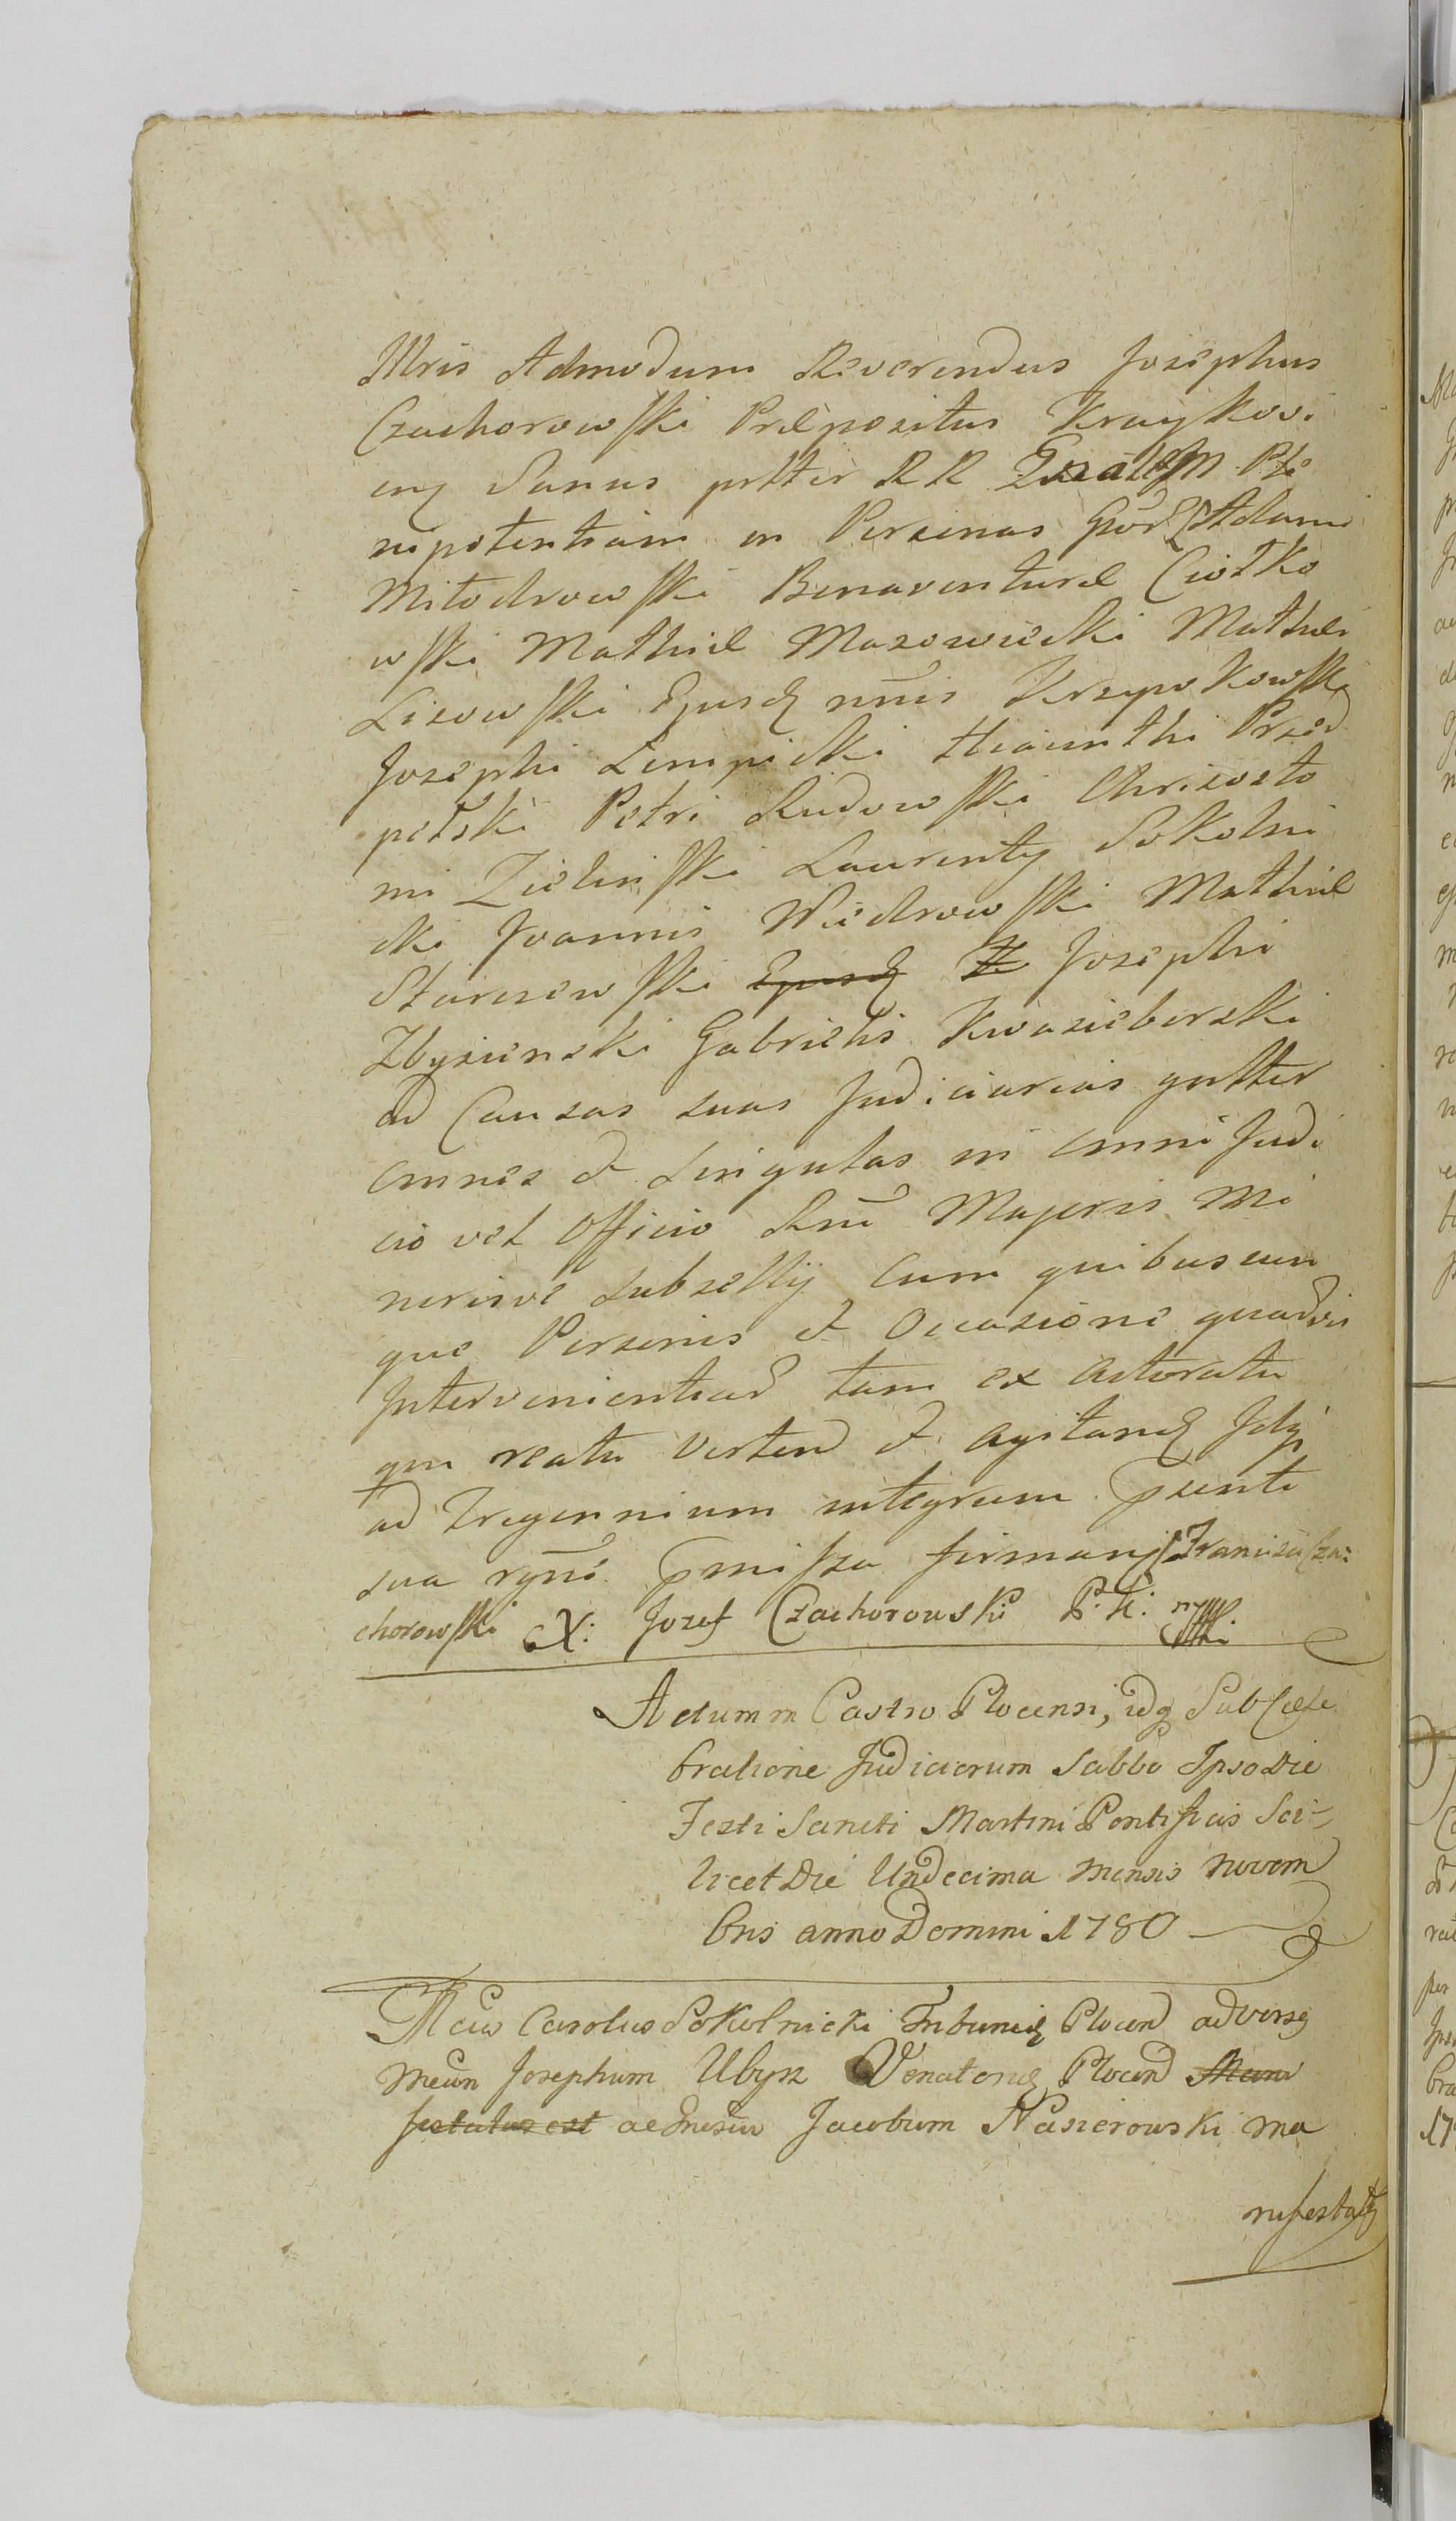 Illris Admodum Reverendus Josephus
Czachorowski Præpositus Kraykovi
en Sanus pstter RR Gnalem Ple
nipotentiam in Personas Gnor Adami
Miłodrowski Bonaventuræ Ciołko
wski Mathiæ Mazowiecki Mathæi
Lisowski Ejusd nnis Krzywkowski
Josephi Lempicki Hiacinthi Przed
pełski Petri Rudowski Chrizosto
mi Zielinski Laurentij Sokolni
cki Joannis Wiedrowski Mathiæ
Starczewski Ejusd Josephi
Zbyszenski Gabrielis Kwasieborski
ad Causas suas Judiciarias gnltter
omnes et singulas in omni Judi
cio vel Officio Rni Majoris Mi
norisve Subsellij cum quibuscun
que Personis et Occasione quavis
Intervenientiad tam ex actoratu
qm reatu vertend et agitand Idq
ad Tregennium integrum pnti
sua rgne pmissa firmans Francisci Cza:
chorowski X: Jozef Czachorowski P. K. mpp
Actum in Castro Plocensi, idq Sub Cele
bratione Judiciorum Sabbo Ipso Die
Festi Sancti Martini Pontificis Sci-
licet Die Undecima mensis Novem
bris anno Domini 1780
Mcus Carolus Sokolnicki Tribunid Plocen adversq
Mcum Josephum Ubysz Venatorid Plocen Mani
festatus est ac Gnosum Jacobum Nasierowski ma
nifestatq